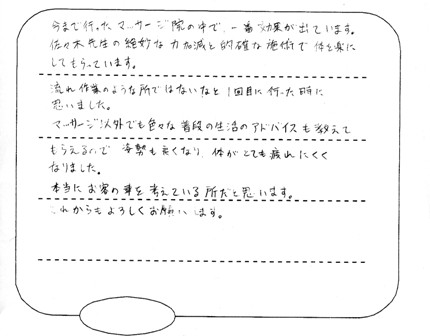 今まで行ったマッサージ院の中で、一番効果が出ています。
佐々木先生の絶妙な力加減と的確な施術で体を楽に
してもらっています。
流れ作業のような所ではないなと1回目に行った時に
思いました。
マッサージ以外でも色々な普段の生活のアドバイスも教えて
もらえるので姿勢も良くなり、体がとても疲れにくく
なりました。
本当にお客の事を考えている所だと思います。
これからもよろしくお願いします。